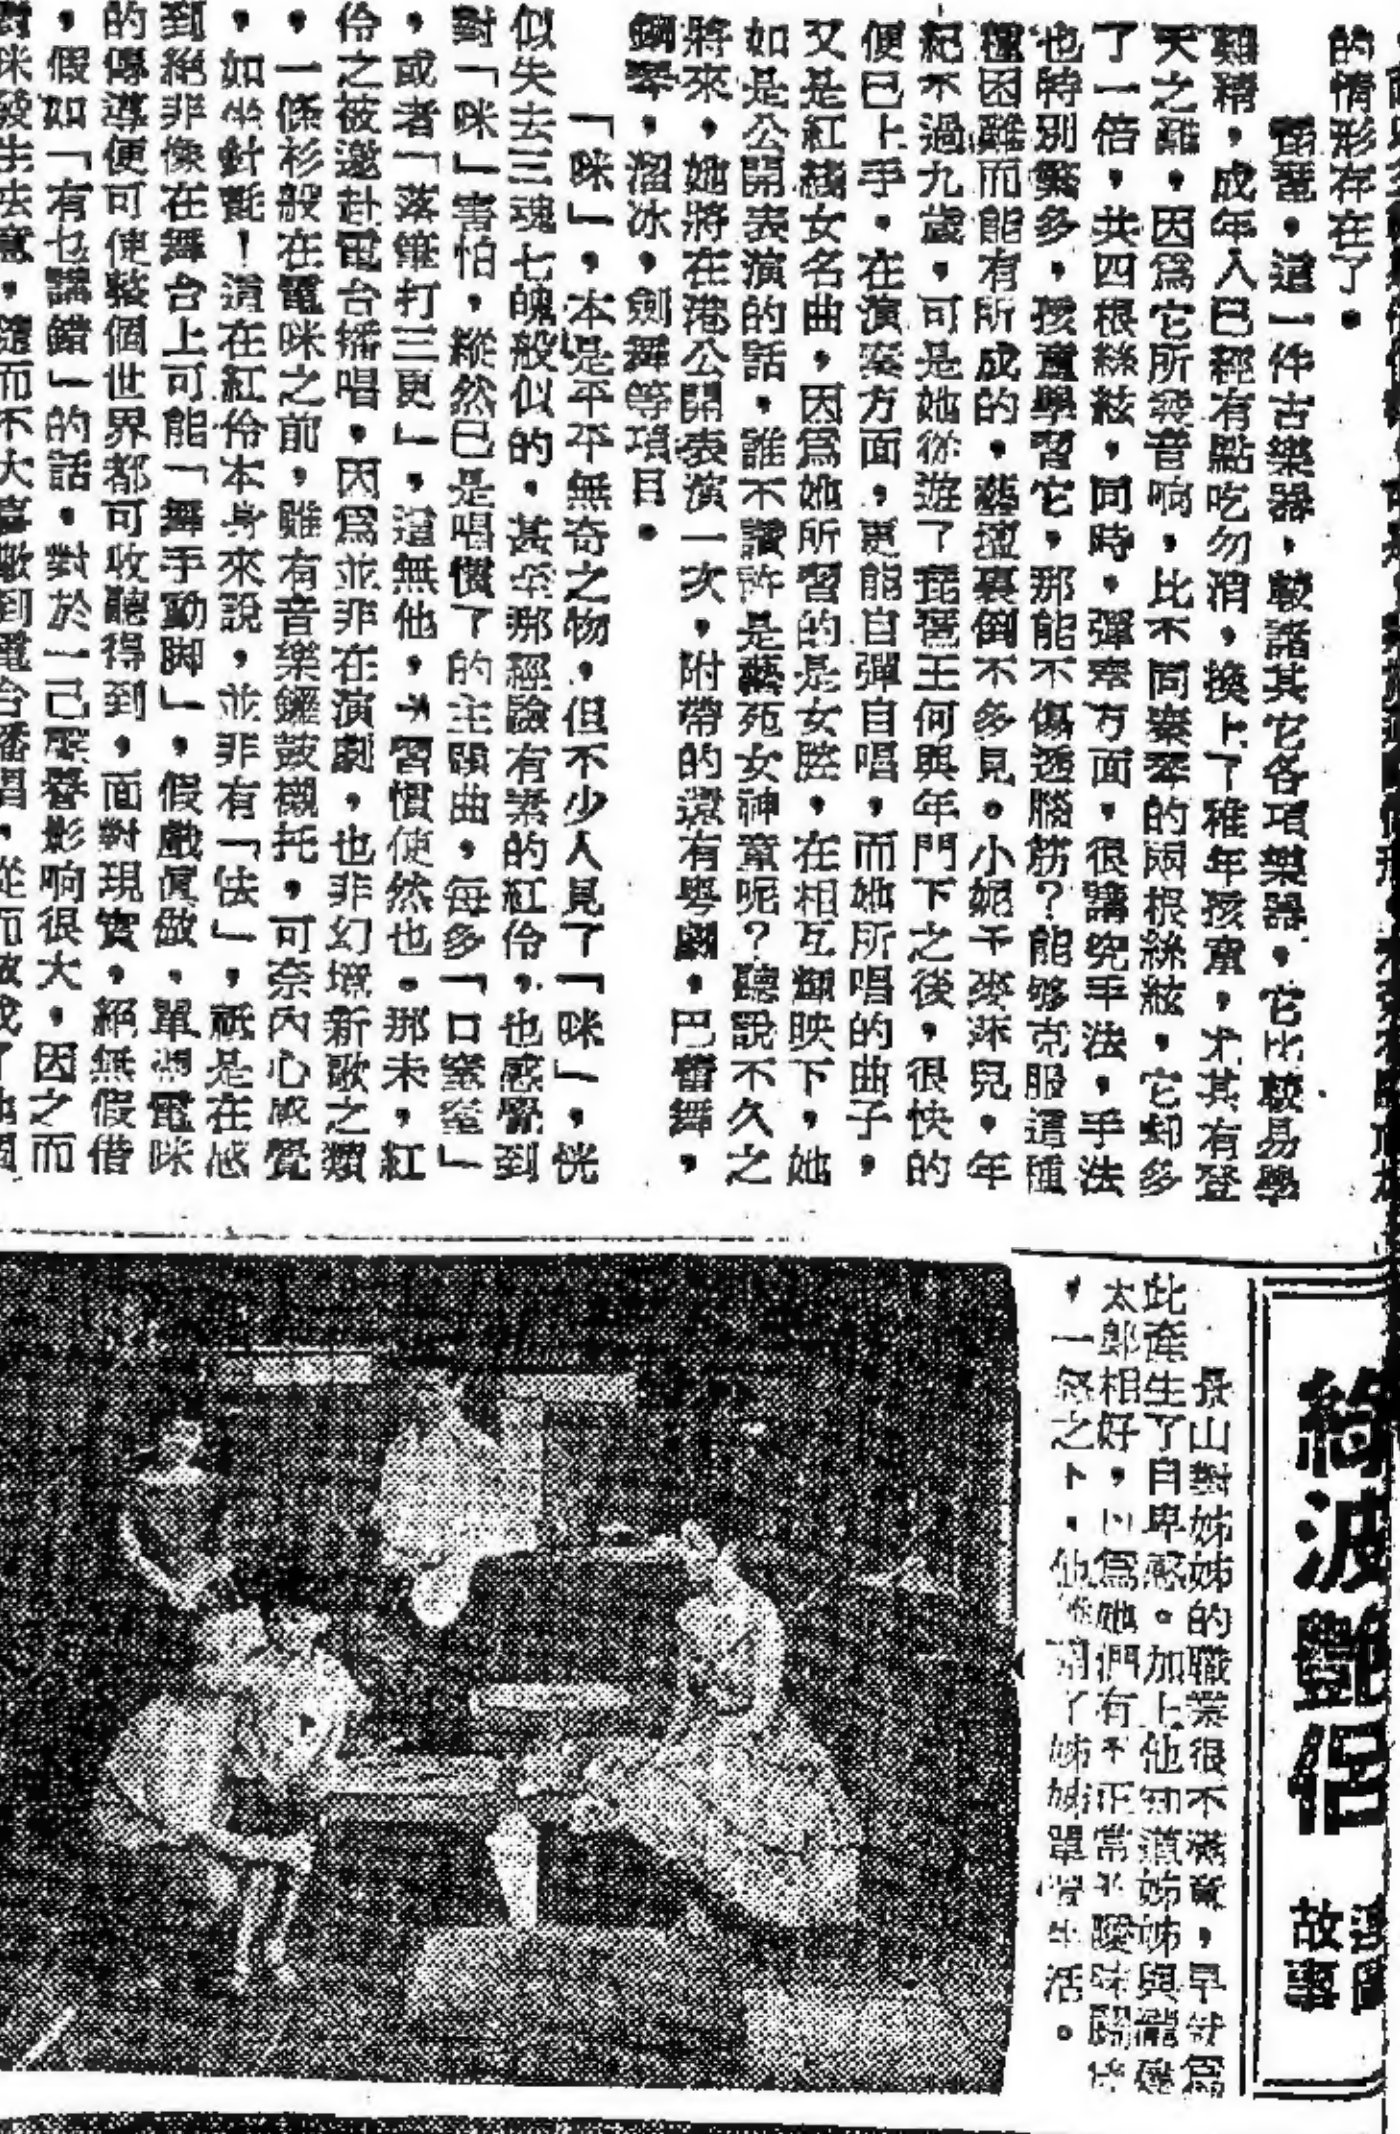 的情形存在了。
琵琶，這一件古樂器，較諸其它各項樂器，它比較易學
難精，成年人已經有點吃勿消，換上了稚年孩童，尤其有登
天之難。因為它所發音响，比不同秦琴的兩根絲絃，它却多
了一倍，共四根絲絃，同時，彈奏方面，很講究手法，手法
也特別繁多，孩童學習它，那能不傷透腦筋？能够克服這種
種困難而能有所成的，藝壇裏倒不多見。小妮子麥蔴兒，年
紀不過九歲，可是她從遊了琵琶王何與年門下之後，很快的
便已上手。在演奏方面，更能自彈自唱，而她所唱的曲子，
又是紅綫女名曲，因為她所習的是女腔，在相互輝映下，她
如是公開表演的話，誰不讚許是藝苑女神童呢？聽說不久之
將來，她將在港公開表演一次，附帶的還有粤劇，巴蕾舞，
鋼琴，溜冰，劍舞等項目。
「咪」，本是平平無奇之物，但不少人見了「咪」，恍
似失去三魂七魄般似的，甚至那經驗有素的紅伶，也感覺到
對「咪」害怕，縱然已是唱慣了的主題曲，每多「口窒窒」
，或者「落錐打三更」，這無他，習慣使然也。那末，紅
伶之被邀赴電台播唱，因為並非在演劇，也非幻境新歌之類
，一條衫般在電咪之前，雖有音樂鑼鼓襯托，可奈內心感覺
，如坐針氈！這在紅伶本身來說，並非有「怯」，祇是在感
到絕非像在舞台上可能「舞手動脚」，假戲眞做，單憑電咪
的傳導便可使整個世界都可收聽得到，面對現實，絕無假借
，假如「有乜講錯」的話，對於一己聲影响很大，因之而
對咪發生怯意，隨而不大喜歡到電台播唱，從而做成了
綺波艷侶
故事
長山對姊姊的職業很不滿意，早就爲
此產生了自卑感。加上他知道姊姊與龍
太郎相好，以爲她們有不正常的曖昧關
，一怒之下，他離開了姊姊單獨生活。